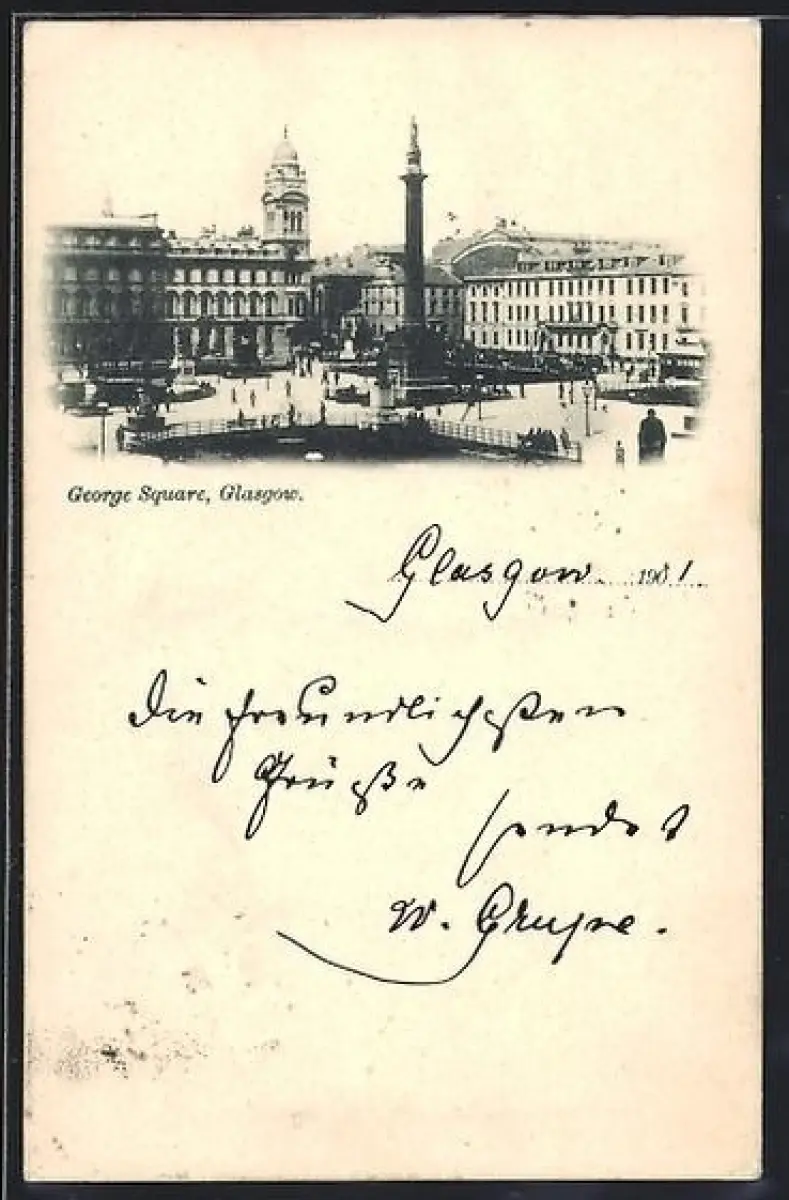 George Square, Glasgow.
Glasgow. 1901.
Die freundlichsten
Grüße
sendet
W. Grupe.